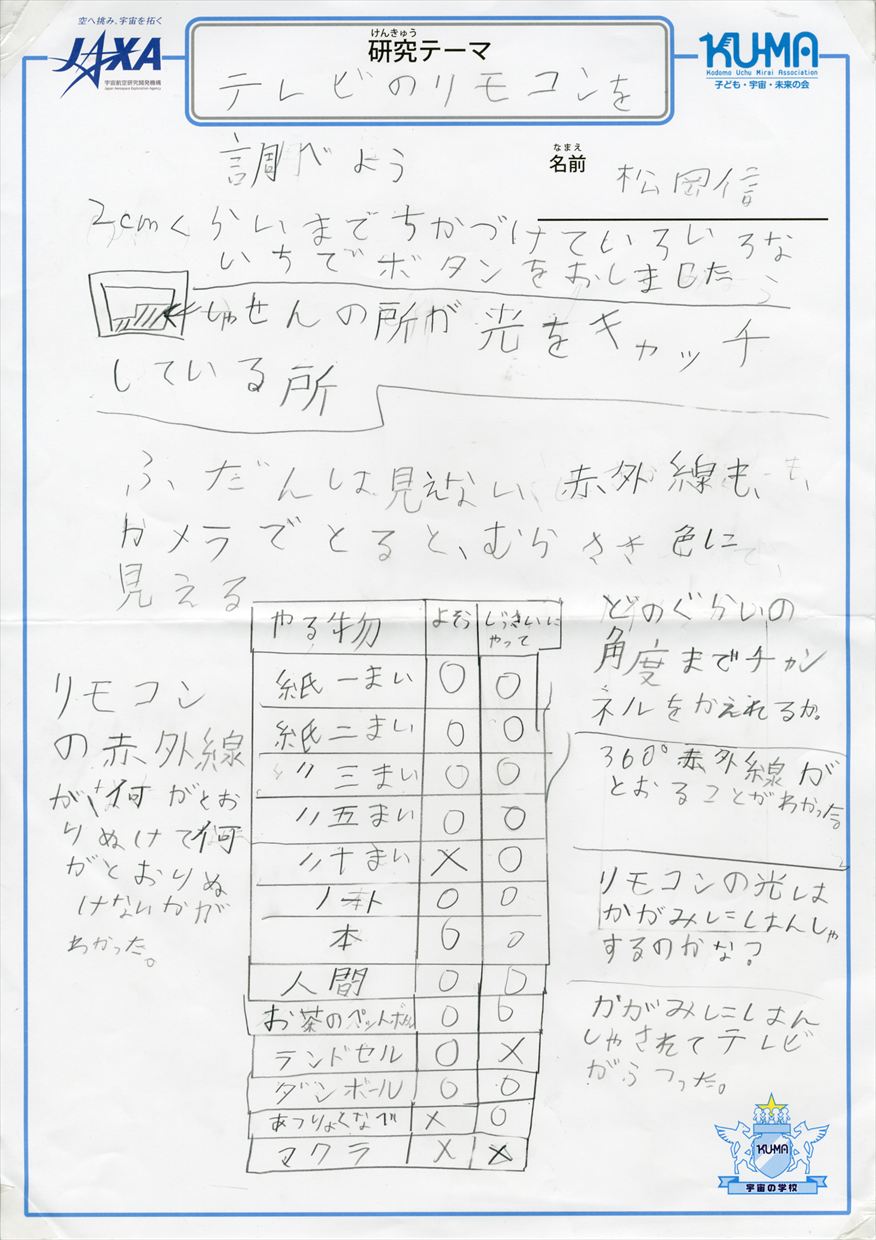 空へ挑み、宇宙を拓く
JAXA
宇宙航空研究開発機構
Japan Aerospace Exploration Agency
けんきゅう
研究テーマ
KU-MA
Kodomo Uchu Mirai Association
子ども・宇宙・未来の会
テレビのリモコンを
調べよう
なまえ
名前
松岡信
2cmくらいまでちかづけていろいろな
いちでボタンをおしました
しゃせんの所が光をキャッチ
している所
ふだんは見えない赤外線も、
カメラでとると、むらさき色に
見える
やる物 よそう じっさいにやって
紙一まい ○ ○
紙二まい ○ ○
〃三まい ○ ○
〃五まい ○ ○
〃十まい × ○
ノート ○ ○
本 ○ ○
人間 ○ ○
お茶のペットボトル ○ ○
ランドセル ○ ×
ダンボール ○ ○
あつりょくなべ × ○
マクラ × ×
リモコン
の赤外線
が、何がとお
りぬけて何
がとおりぬ
けないかが
わかった。
どのぐらいの
角度までチャン
ネルをかえれるか。
360°赤外線が
とおることがわかった
リモコンの光は
かがみにはんしゃ
するのかな?
かがみにはん
しゃされてテレビ
がうつった。
KU-MA
宇宙の学校